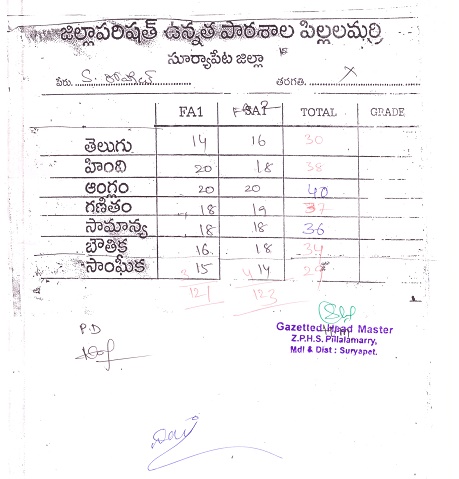 జిల్లాపరిషత్ ఉన్నత పాఠశాల పిల్లలమర్రి
సూర్యాపేట జిల్లా
పేరు. S. తరగతి. X
FA1 FA2 TOTAL GRADE
తెలుగు 14 16 30
హింది 20 18 38
ఆంగ్లం 20 20 40
గణితం 18 19 37
సామాన్య 18 18 36
బౌతిక 16 18 34
సాంఘీక 15 14 29
121 123
P.D
Gazetted Head Master
Z.P.H.S. Pillalamarry,
Mdl & Dist : Suryapet.